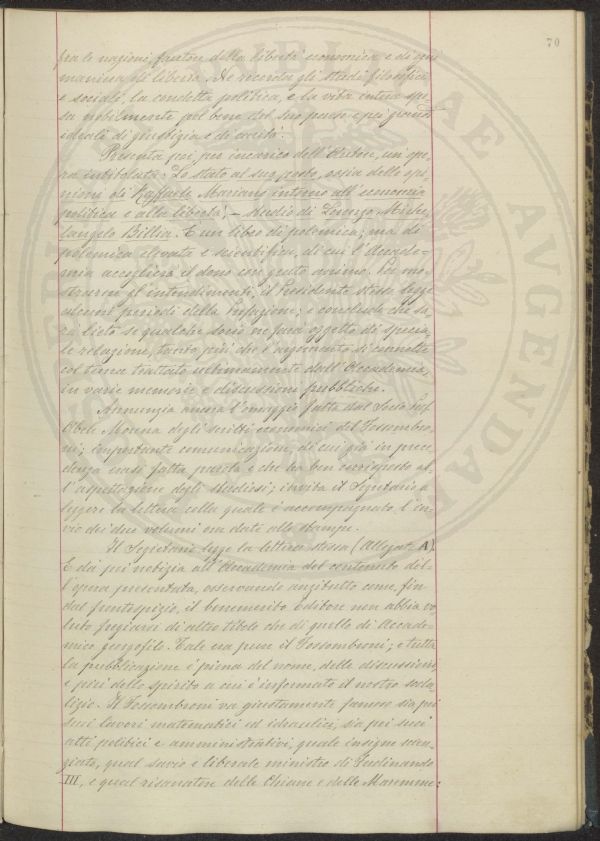 70
fra le nazioni, fautore della libertà economica e di ogni
maniera di libertà. Ne ricorda gli studi filosofici
e sociali, la condotta politica, e la vita intera spe-
sa nobilmente pel bene del suo paese e pei grandi
ideali di giustizia e di carità.
Presenta poi per incarico dell'Autore, un'ope-
ra intitolata: Lo stato al suo posto, ossia delle opi-
nioni di Raffaele Mariano intorno all'economia
politica e alla libertà, – studio di Lorenzo Miche-
langelo Billia. È un libro di polemica; ma di
polemica elevata e scientifica, di cui l'Accade-
mia accoglierà il dono con grato animo. Per mo-
strarne gl'intendimenti, il Presidente stesso legge
alcuni periodi della Prefazione; e conclude che sa-
rà lieto se qualche socio ne farà oggetto di specia-
le relazione, tanto più che l'argomento si connette
col tema trattato ultimamente dall'Accademia,
in varie memorie e discussioni pubbliche.
Annunzia ancora l'omaggio fatto dal Socio Prof.
Abele Morena degli scritti economici del Fossombro-
ni; importante comunicazione, di cui già in prece-
denza erasi fatta parola e che ha ben corrisposto al-
l'aspettazione degli studiosi; invita il Segretario a
leggere la lettera colla quale è accompagnato, l'in-
vio dei due volumi ora dati alle stampe.
Il Segretario legge la lettera stessa (Allegato A).
E dà poi notizia all'Accademia del contenuto del-
l'opera presentata, osservando anzitutto come fin
dal frontespizio, il benemerito Editore non abbia vo-
luto fregiarsi di altro titolo che di quello di Accade-
mico georgofilo. Tale era pure il Fossombroni; e tutta
la pubblicazione è piena del nome, delle discussioni,
e più dello spirito a cui è informato il nostro soda-
lizio. Il Fossombroni va giustamente famoso sia pei
suoi lavori matematici ed idraulici, sia pei suoi
atti politici e amministrativi, quale insigne scien-
ziato, qual savio e liberale ministro di Ferdinando
III, e qual risanatore delle Chiane e delle Maremme: